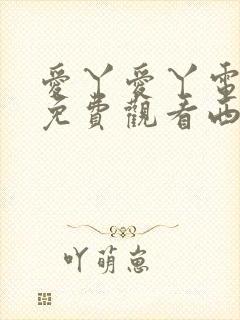 愛丫愛丫電
免費觀看西
吖萌崽